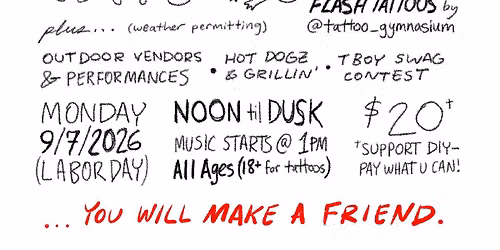 FLASH TATTOOS by
plus... (weather permitting) @tattoo_gymnasium
OUTDOOR VENDORS & PERFORMANCES • HOT DOGZ & GRILLIN' • TBOY SWAG CONTEST
MONDAY
9/7/2026
(LABOR DAY)
NOON til DUSK
MUSIC STARTS @ 1PM
All Ages (18+ for tattoos)
$20†
†SUPPORT DIY-
PAY WHAT U CAN!
... YOU WILL MAKE A FRIEND.